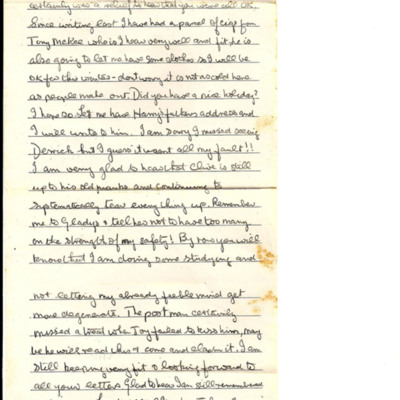 certainly was a relief to hear that you were all OK.
Since writing last I have had a parcel of cigs from
Tony McKee who is I hear very well and fit, he is
also going to let me have some clothes so I will be
OK for this winter - don't worry it is not as cold here
as people make out. Did you have a nice holiday?
I hope so. Let me have Harry's fathers address and
I will write to him. I am sorry I missed seeing
Derrick but I guess it wasnt all my fault!!
I am very glad to hear that Clive is still
up to his old pranks and continuing to
systematically tear everything up. Remember
me to Gladys + tell her not to have too many
on the strength of my safety! By now you will
know that I am doing some studying and
not letting my already feeble mind get
more degenerate. The postman certainly
missed a treat when Joy failed to kiss him, may
be he will read this + come and claim it. I am
still keeping very fit + looking forward to
all your letters Glad to hear I am still remembered